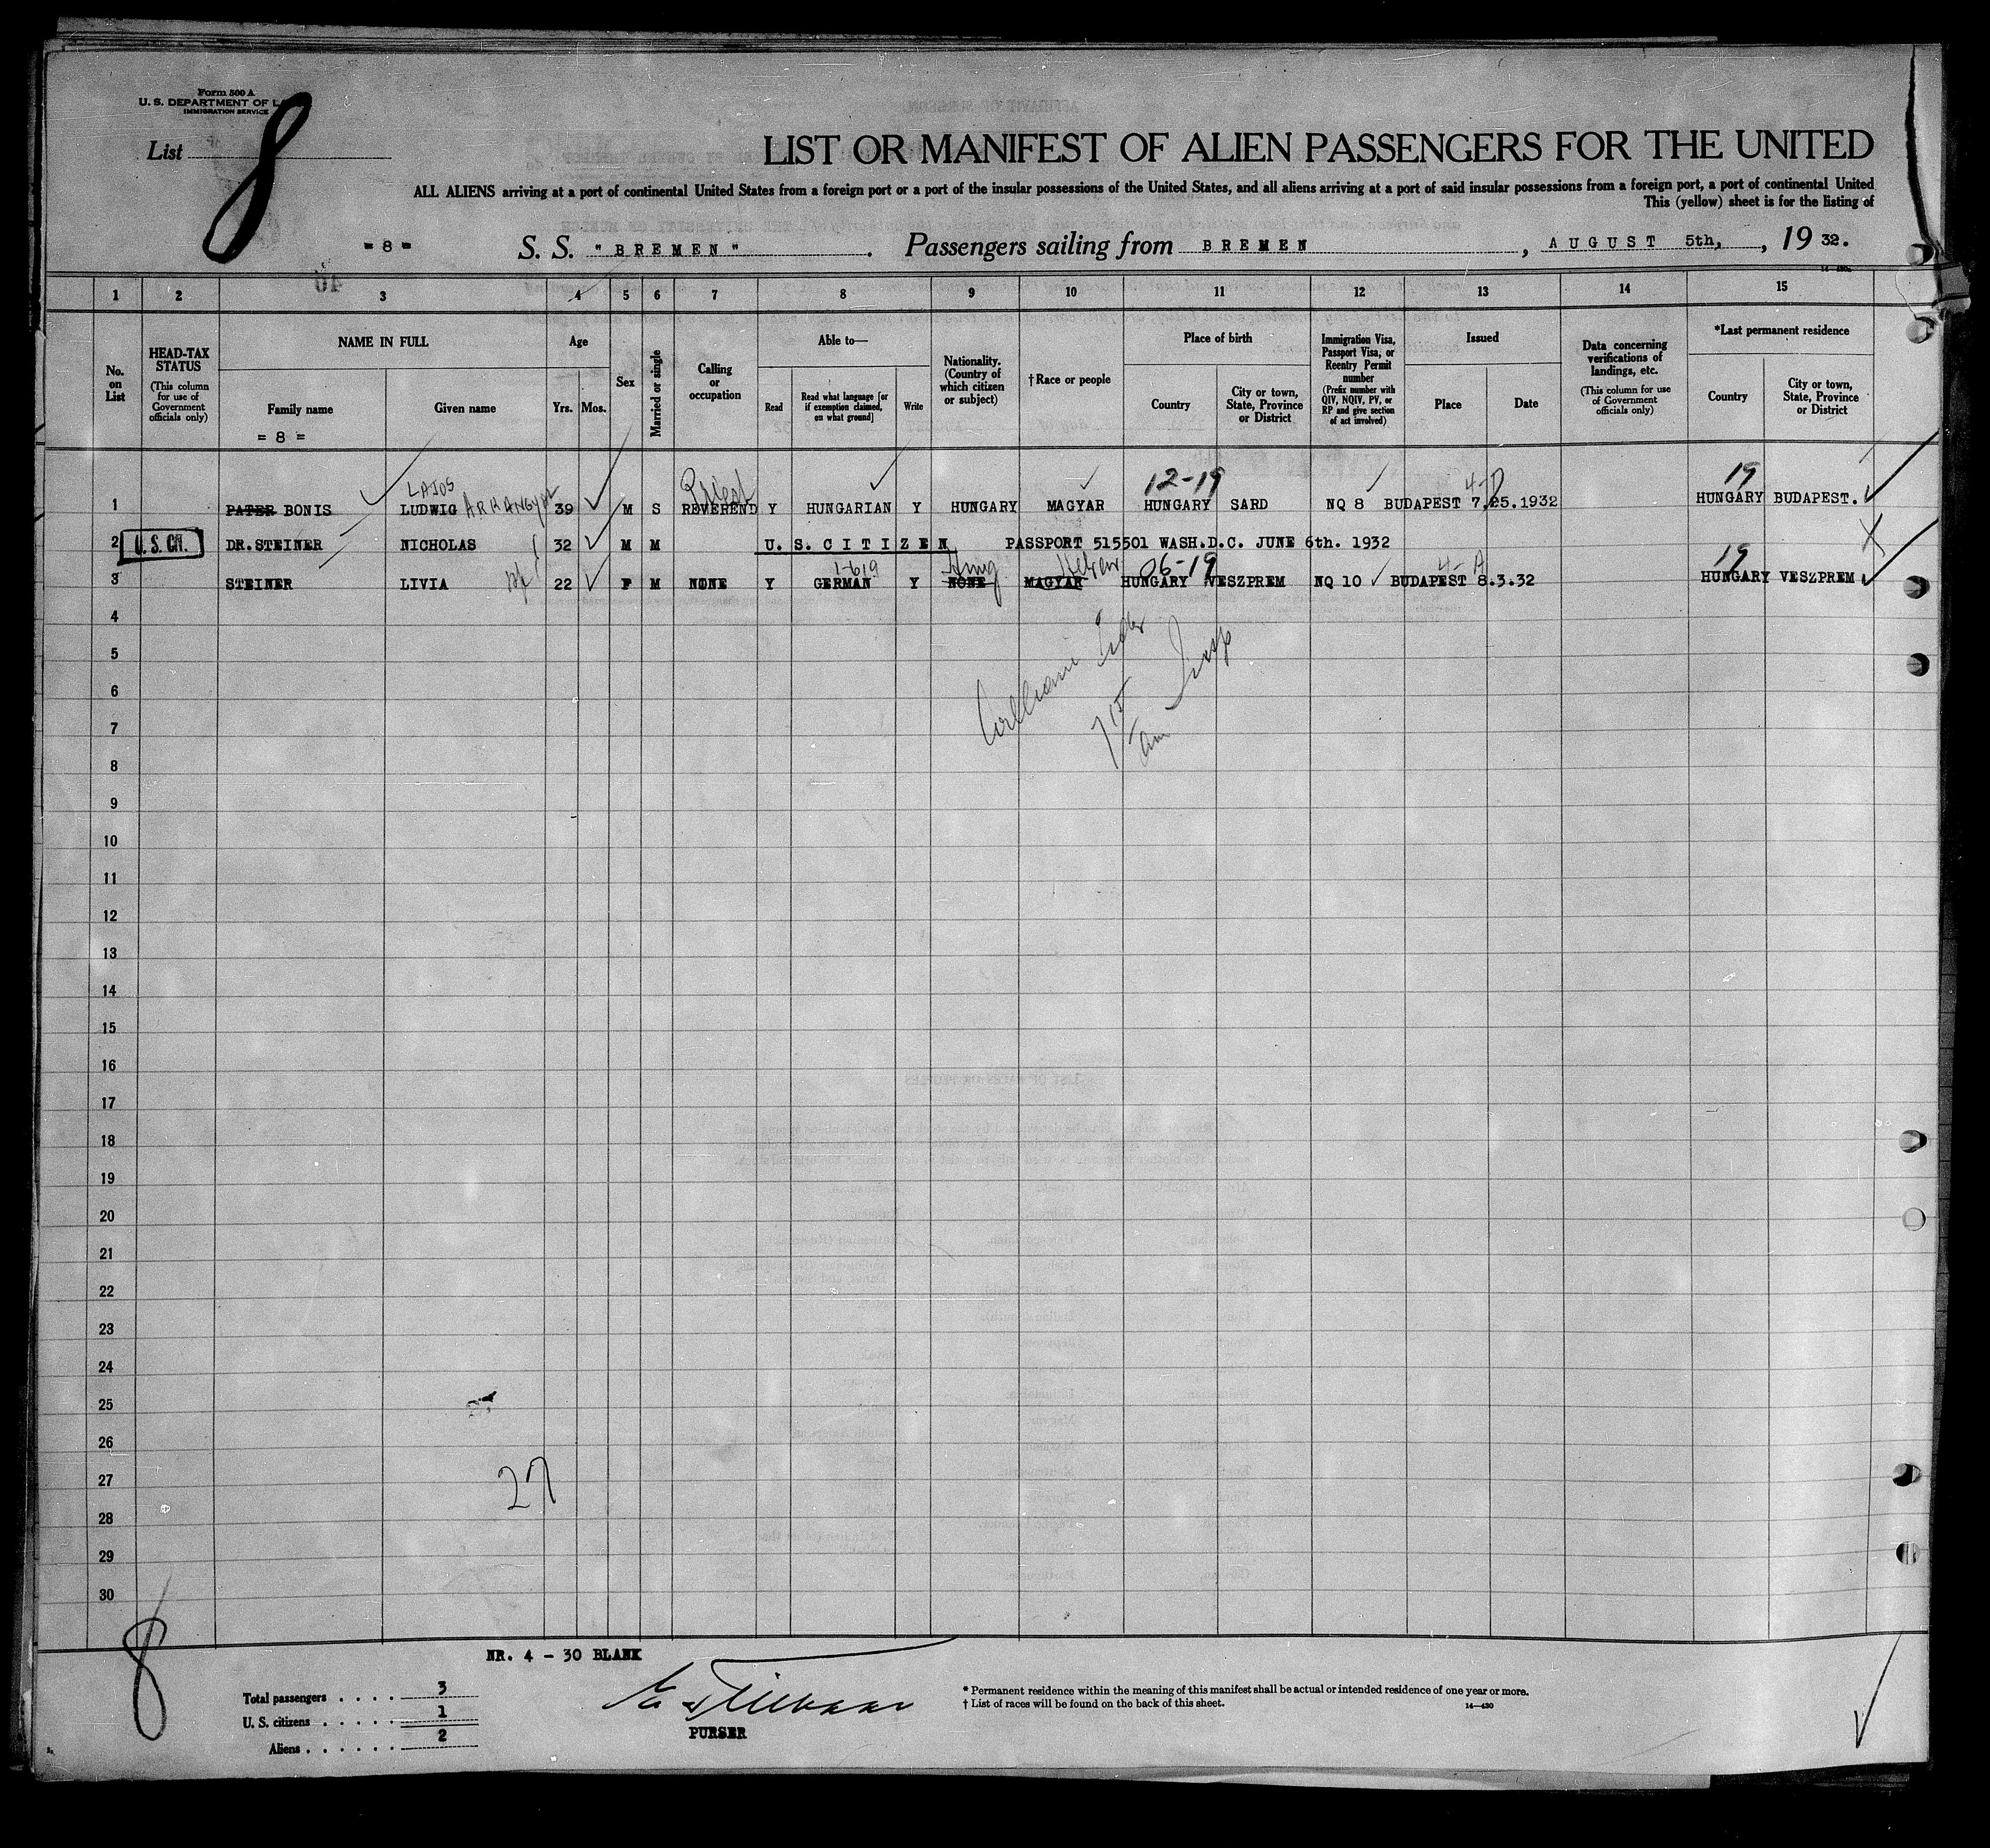 Form 500 A
U. S. DEPARTMENT OF
IMMIGRATION SERVICE
List 8
LIST OR MANIFEST OF ALIEN PASSENGERS FOR THE UNITED
ALL ALIENS arriving at a port of continental United States from a foreign port or a port of the insular possessions of the United States, and all aliens arriving at a port of said insular possessions from a foreign port, a port of continental United
This (yellow) sheet is for the listing of
= 8 = S. S. "BREMEN". Passengers sailing from BREMEN, AUGUST 5th, , 19 32.
1 2 3 4 5 6 7 8 9 10 11 12 13 14 15
No. on List
HEAD-TAX STATUS (This column for use of Government officials only)
NAME IN FULL Family name Given name
= 8 =
Age Yrs. Mos.
Sex
Married or single
Calling or occupation
Able to— Read Read what language [or if exemption claimed, on what ground] Write
Nationality. (Country of which citizen or subject)
†Race or people
Place of birth Country City or town, State, Province or District
Immigration Visa, Passport Visa, or Reentry Permit number (Prefix number with QIV, NQIV, PV, or RP and give section of act involved)
Issued Place Date
Data concerning verifications of landings, etc. (This column for use of Government officials only)
*Last permanent residence Country City or town, State, Province or District
LAJOS Priest 12-19 4-D 19
1 PATER BONIS LUDWIG ARKANGYAL 39 M S REVEREND Y HUNGARIAN Y HUNGARY MAGYAR HUNGARY SARD NQ 8 BUDAPEST 7.25.1932 HUNGARY BUDAPEST.
2 U.S. CIT. DR.STEINER NICHOLAS 32 M M U. S. C I T I Z E N PASSPORT 515501 WASH.D.C. JUNE 6th. 1932
1-619 Hung Hebrew 06-19 4-A 19
3 STEINER LIVIA 22 F M NONE Y GERMAN Y NONE MAGYAR HUNGARY VESZPREM NQ 10 BUDAPEST 8.3.32 HUNGARY VESZPREM
4
5
6
7
8
9
10
11
12
13
14
15
16
17
18
19
20
21
22
23
24
25
26
27
28
29
30
William
Insp
7 15
am
27
8
NR. 4 - 30 BLANK
Total passengers . . . . 3
U. S. citizens . . . . . 1
Aliens . . . . . . 2
PURSER
* Permanent residence within the meaning of this manifest shall be actual or intended residence of one year or more.
† List of races will be found on the back of this sheet.
14—430